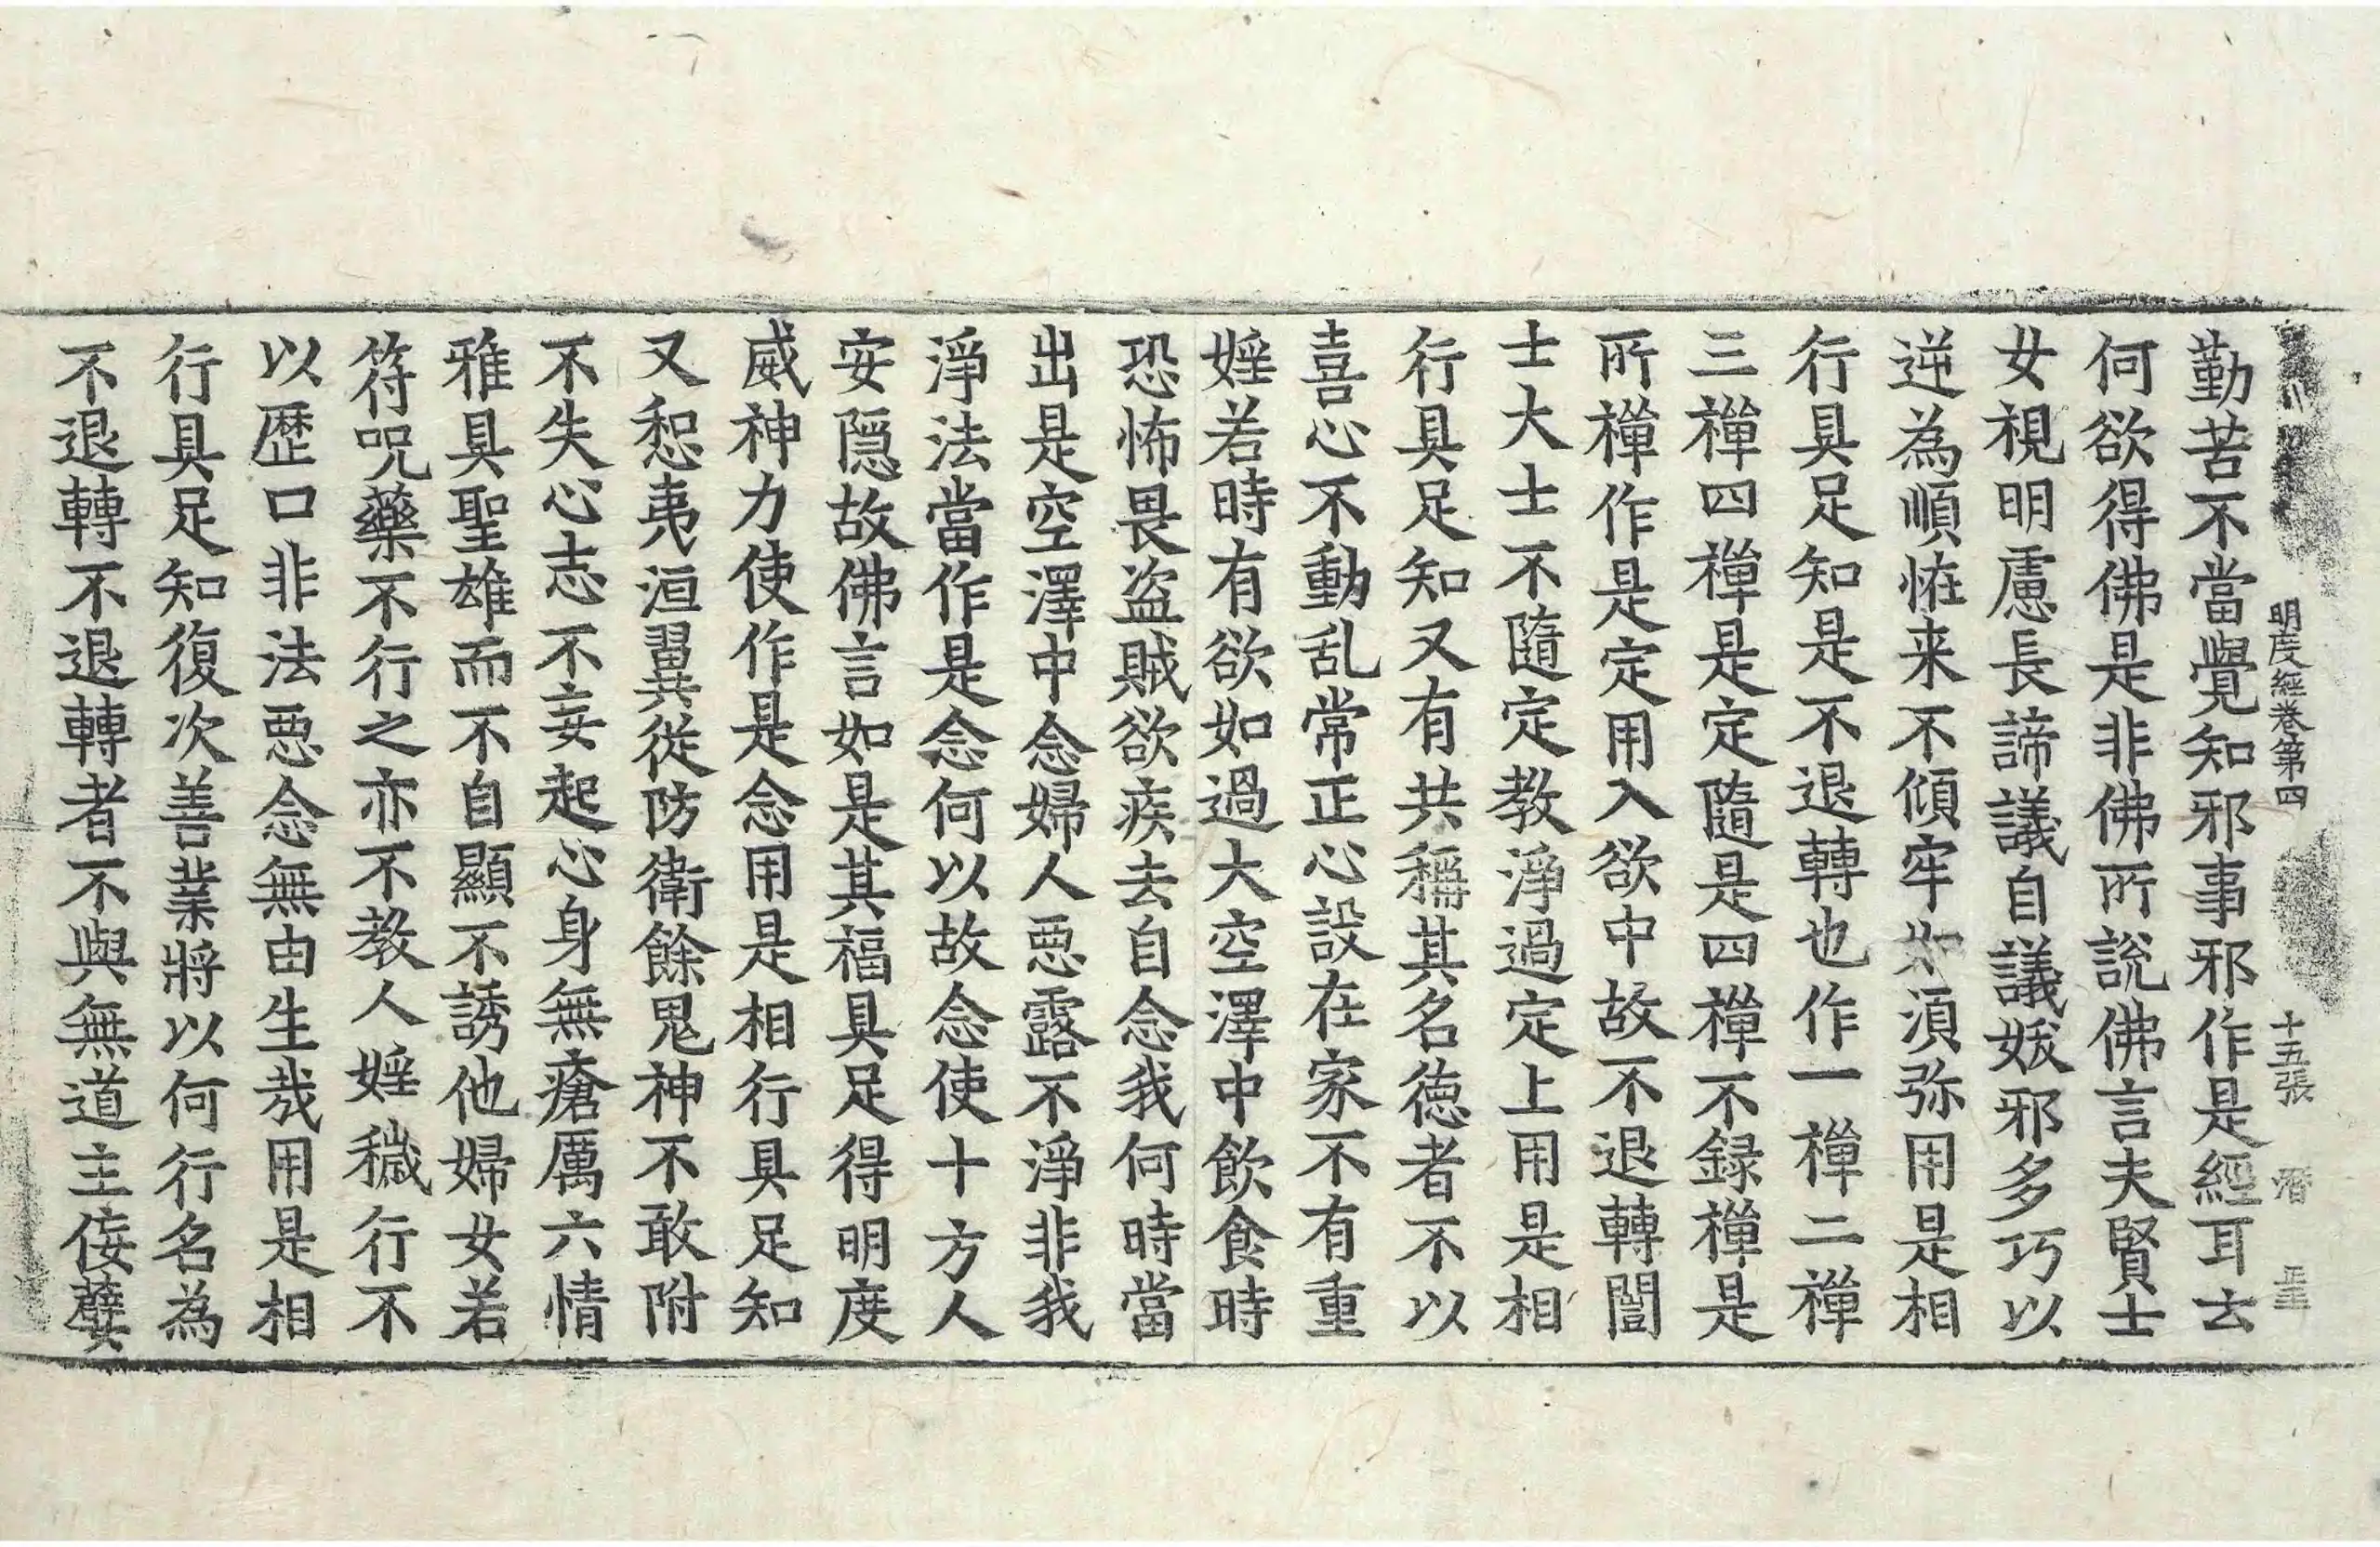 明度經卷第四　十五張
勤苦不當覺知邪事邪作是經耳去
何欲得佛是非佛所說佛言夫賢士
女視明慮長諦議自議妭邪多巧以
逆為順恠来不傾牢如湏弥用是相
行具足知是不退轉也作一禪二禪
三禪四禪是定隨是四禪不録禪是
所禪作是定用入欲中故不退轉闓
士大士不隨定教淨過定上用是相
行具足知又有共稱其名德者不以
喜心不動乱常正心設在家不有重
婬若時有欲如過大空澤中飲食時
恐怖畏盗賊欲疾去自念我何時當
出是空澤中念婦人惡露不淨非我
淨法當作是念何以故念使十方人
安隱故佛言如是其福具足得明度
威神力使作是念用是相行具足知
又惒夷洹翼從防衛餘鬼神不敢附
不失心志不妄起心身無瘡厲六情
雅具聖雄而不自顯不誘他婦女若
符呪藥不行之亦不教人婬穢行不
以歷口非法惡念無由生哉用是相
行具足知復次善業將以何行名為
不退轉不退轉者不與無道主侫孽